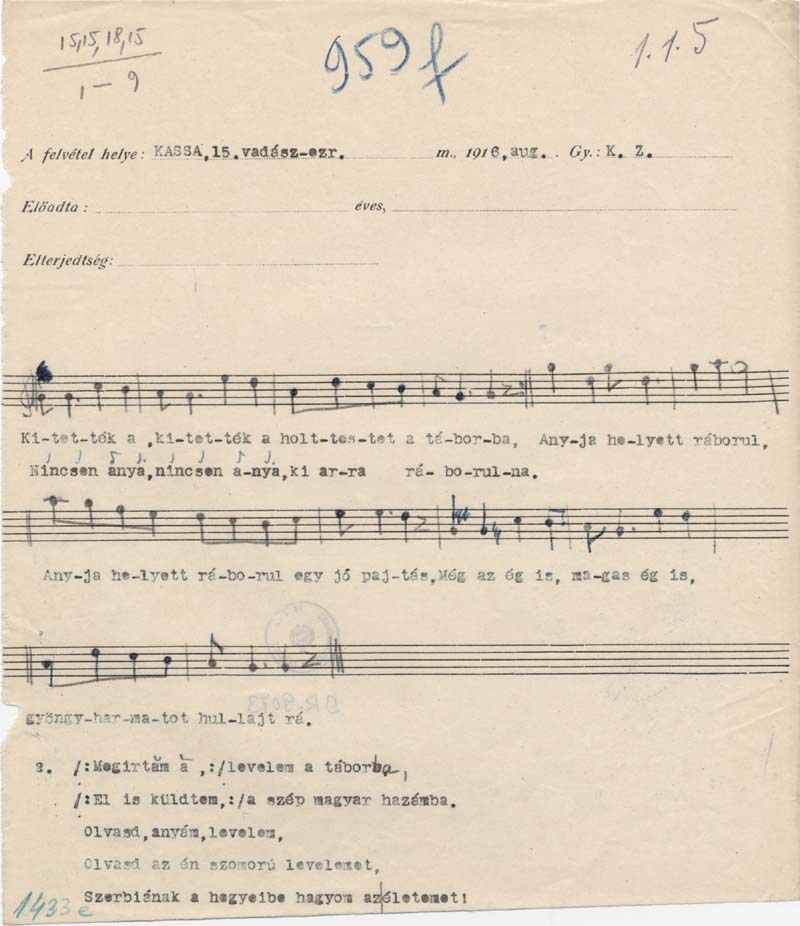 15,15,18,15
1-9
959f
1.1.5
A felvétel helye: KASSA, 15. vadász-ezr. m., 1916, aug. Gy.: K. Z.
Előadta: éves,
Elterjedtség:
Ki-tet-ték a ,ki-tet-ték a holt-tes-tet a tá-bor-ba, Any-ja he-lyett ráborul,
Nincsen anya,nincsen a-nya,ki ar-ra rá-bo-rul-na.
Any-ja he-lyett rá-bo-rul egy jó paj-tás,Még az ég is, ma-gas ég is,
gyöngy-har-ma-tot hul-lajt rá.
BR 9073
2. /:Megirtăm à ,:/levelem a táborba,
/:El is küldtem,:/a szép magyar hazámba.
Olvasd,anyám,levelem,
Olvasd az én szomorú levelemet,
Szerbiának a hegyeibe hagyom az|életemet!
1433e